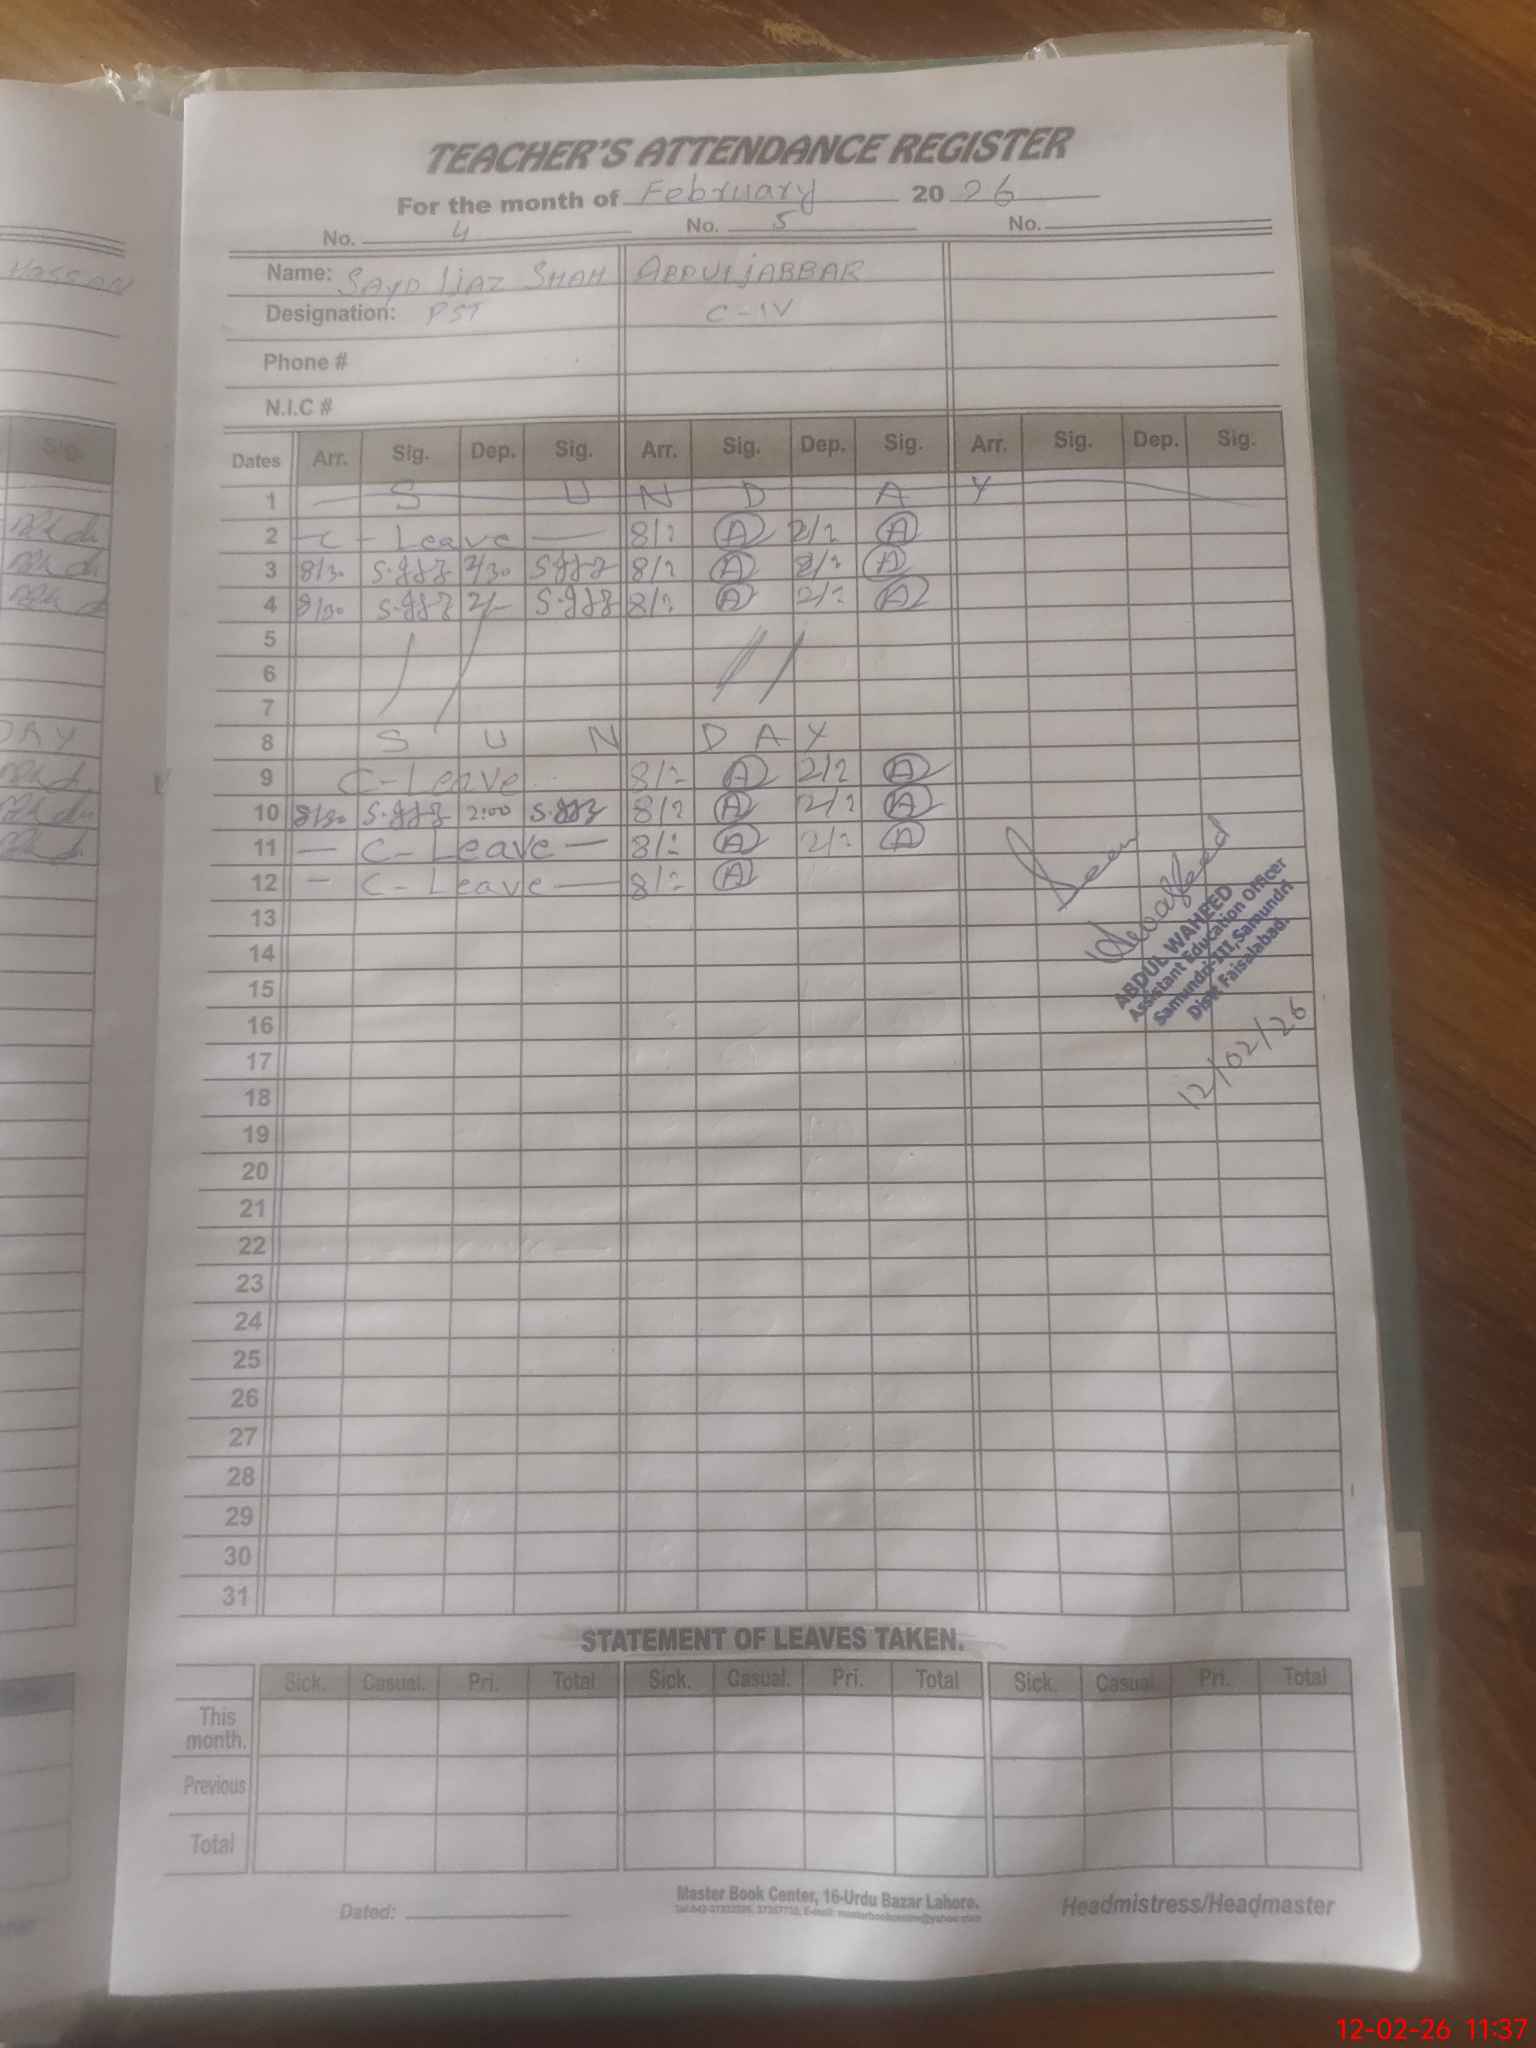 TEACHER'S ATTENDANCE REGISTER
For the month of February 2026
No. 4 No. 5 No.
Name: SAYD IJAZ SHAH ABDULJABBAR
Designation: PST C-IV
Phone #
N.I.C #
Dates Arr. Sig. Dep. Sig. Arr. Sig. Dep. Sig. Arr. Sig. Dep. Sig.
1 S U N D A Y
2 C-Leave 8/ A 2/ A
3 8/30 2/30 8/ A A
4 8/30 2/- 8/ A 2/ A
5
6
7
8 S U N D A Y
9 C-Leave 8/ A 2/ A
10 8/30 2:00 8/ A 2/ A
11 — C-Leave — 8/ A 2/ A
12 — C-Leave — 8/ A
Seen
ABDUL WAHEED
Assistant Education Officer
Samundri-III, Samundri
Distt Faisalabad.
12/02/26
13
14
15
16
17
18
19
20
21
22
23
24
25
26
27
28
29
30
31
STATEMENT OF LEAVES TAKEN.
Sick. Casual. Pri. Total Sick. Casual. Pri. Total Sick. Casual Pri. Total
This month.
Previous
Total
Dated:
Master Book Center, 16-Urdu Bazar Lahore.
Headmistress/Headmaster
12-02-26 11:37